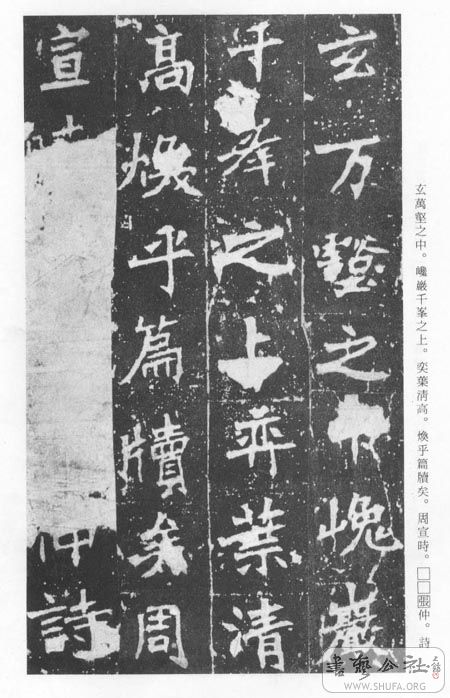 玄萬壑之中。巉巖千峯之上。奕葉清高。煥乎篇牘矣。周宣時。□□張仲。詩
玄万壑之巉巖
千峯之上弈葉清
高煥乎篇牘矣周
宣仲詩
書藝公社
WWW.SHUFA.ORG